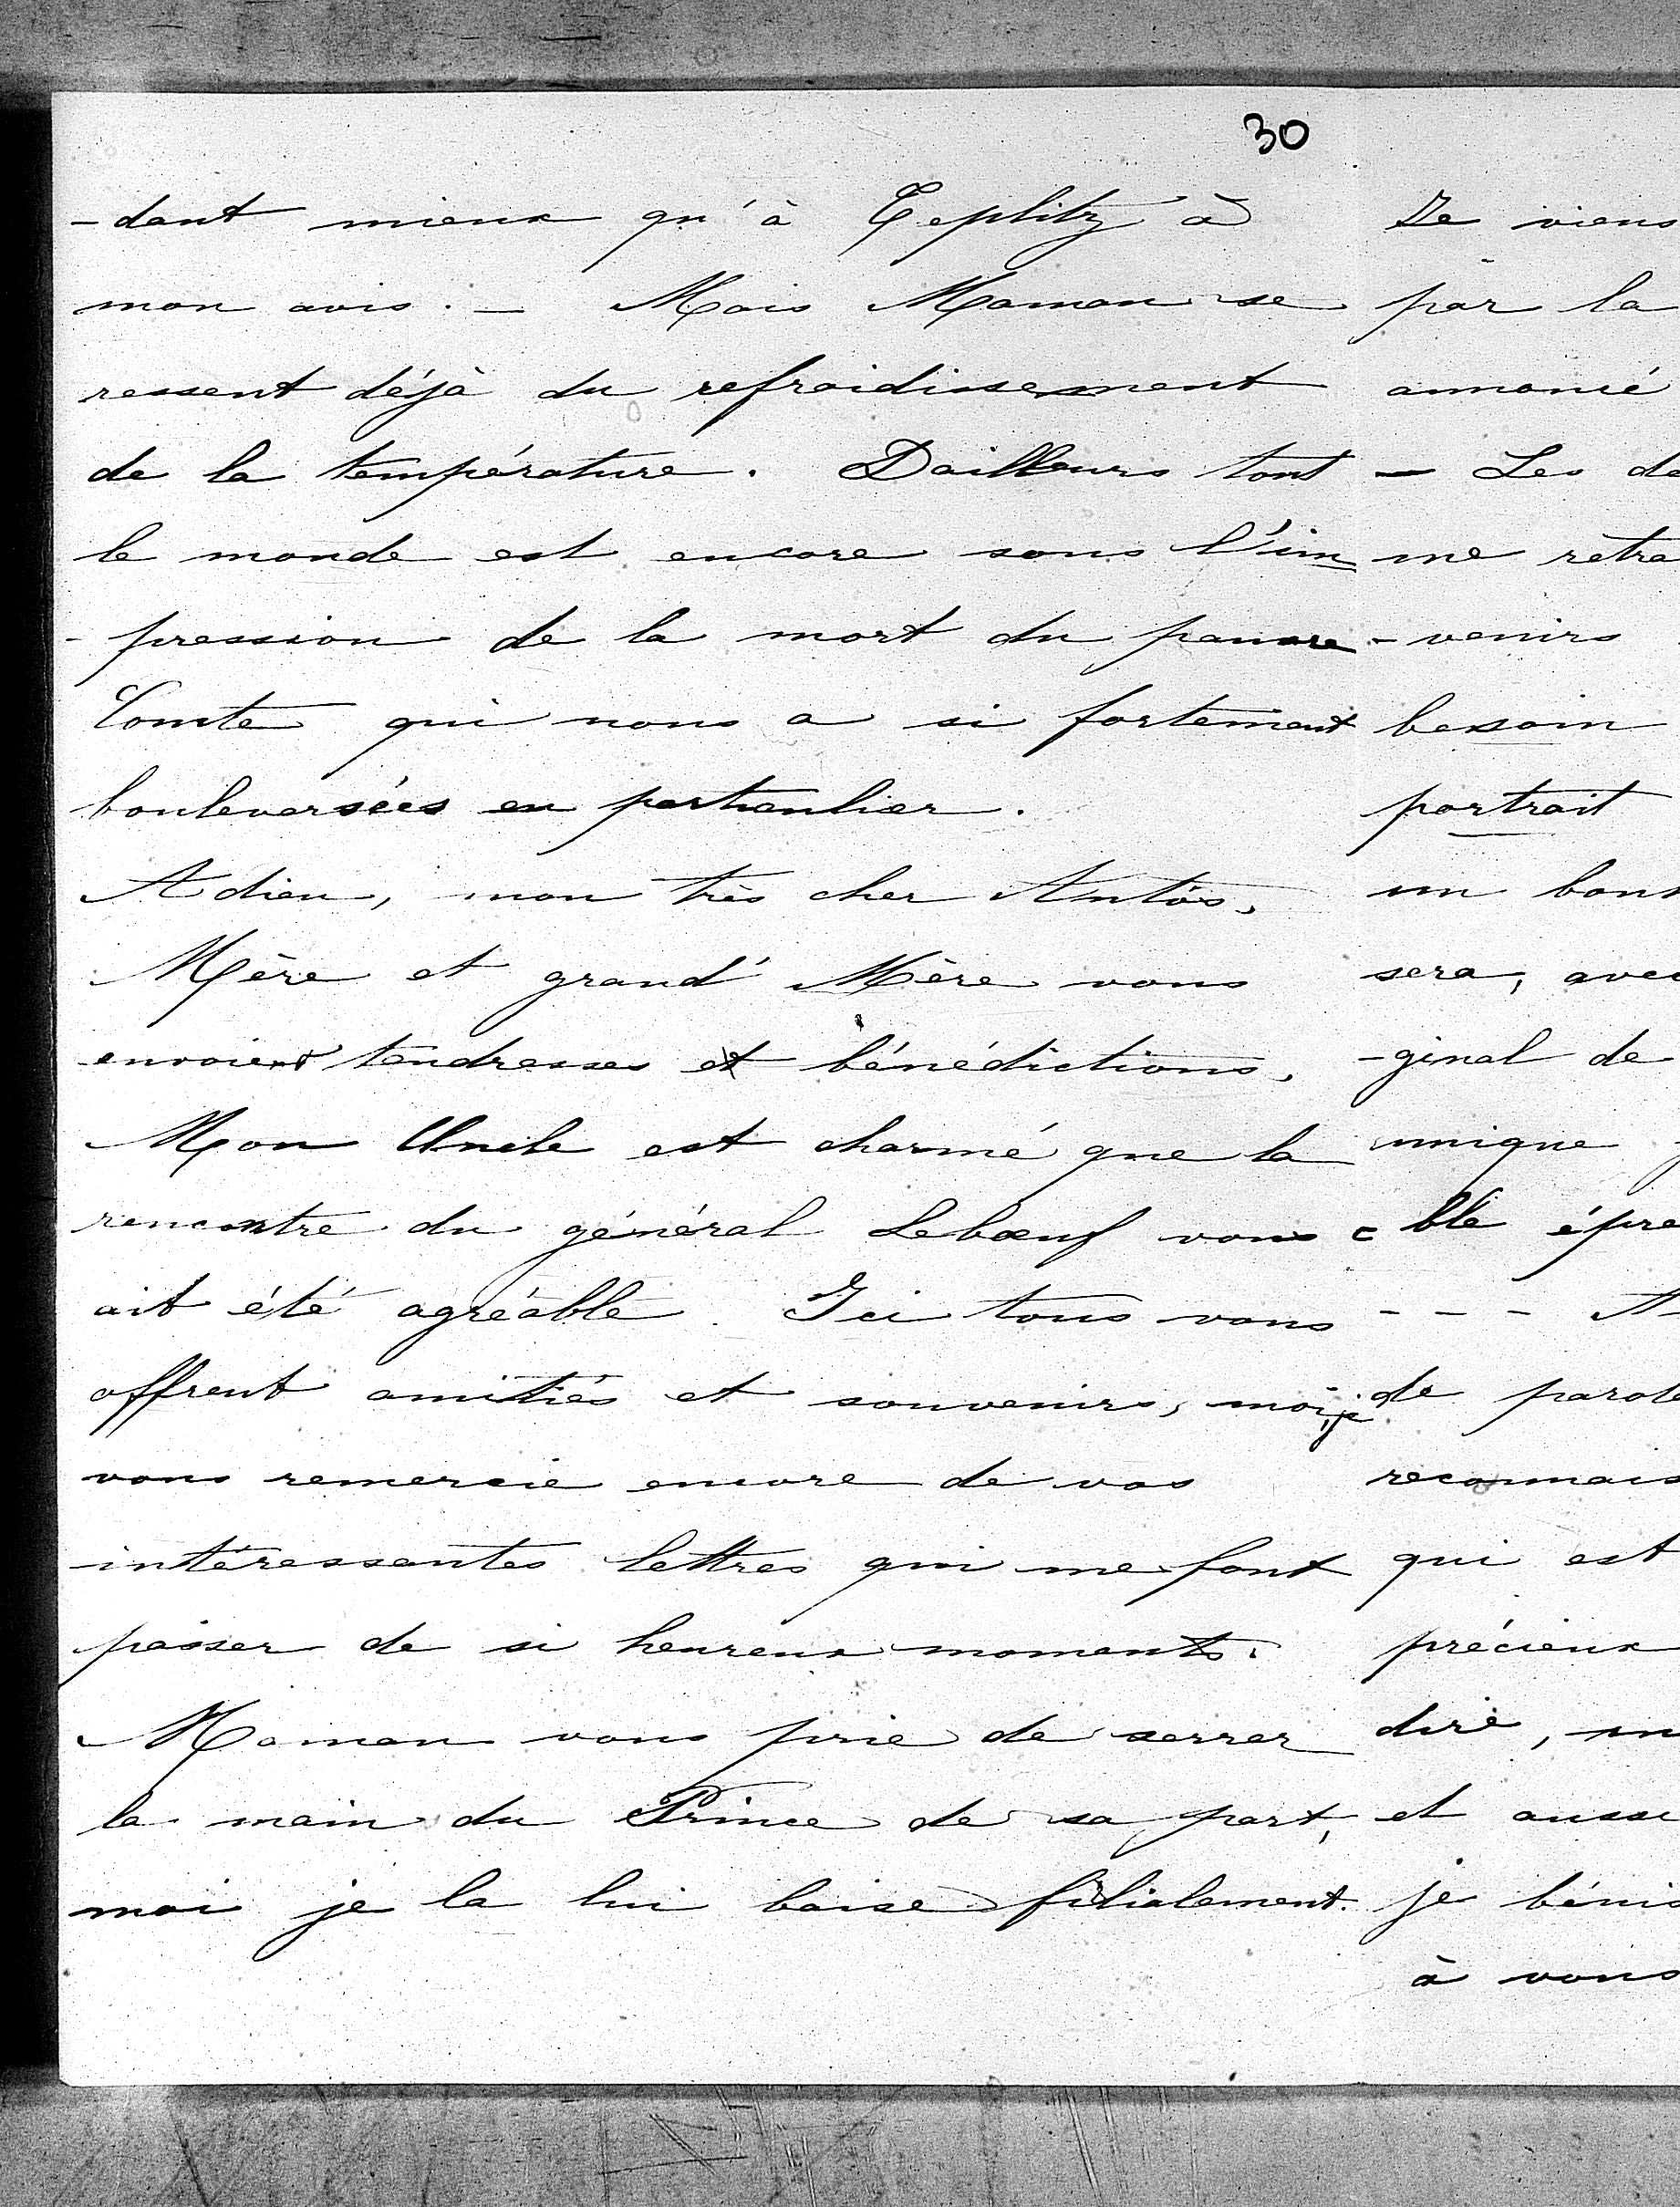 30
-dant mieux qu'à Teplitz à
mon avis. — Mais Maman se
ressent déjà du refroidissement
de la température. Dailleurs tout
le monde est encore sous l'im
-pression de la mort du pauvre
Comte qui nous a si fortement
bouleversées en particulier.
Adieu, mon très cher Antós,
Mère et grand' Mère vous
envoient tendresses et bénédictions,
Mon Uncle est charmé que la
rencontre du général Lebœuf vous
ait été agréable. Ici tous vous
offrent amitiés et souvenirs, moi, je
vous remercie encore de vos
intéressantes lettres qui me font
passer de si heureux moments.
Maman vous prie de serrer
la main du Prince de sa part,
moi je la lui baise filialement.
Je viens
par la
annoncé
— Les de
me retra
-venirs
besoin
portrait
un bon
sera, avec
-ginal de
unique
ble épre
- - - A
de parole
reconnais
qui est
précieux
dire, un
et aussi
je bénis
à vous